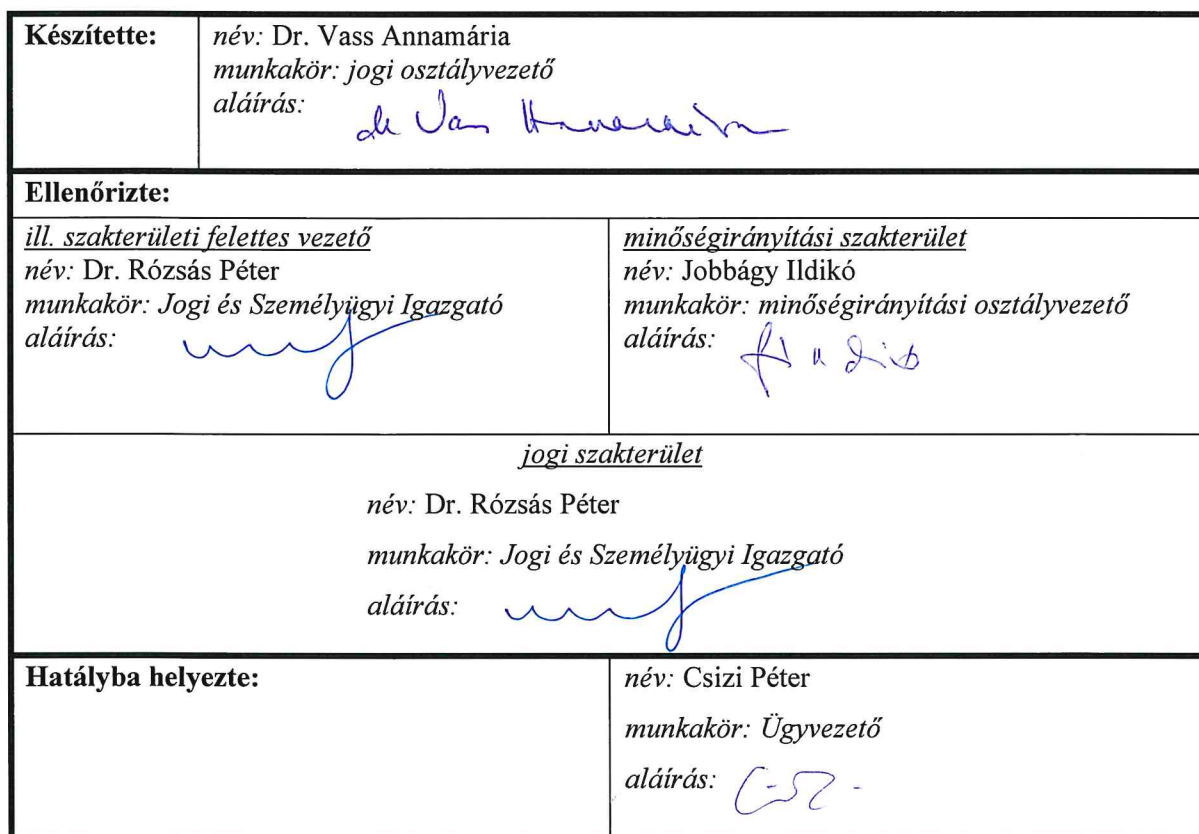 Készítette:
név: Dr. Vass Annamária
munkakör: jogi osztályvezető
aláírás:
Ellenőrizte:
ill. szakterületi felettes vezető
név: Dr. Rózsás Péter
munkakör: Jogi és Személyügyi Igazgató
aláírás:
minőségirányítási szakterület
név: Jobbágy Ildikó
munkakör: minőségirányítási osztályvezető
aláírás:
jogi szakterület
név: Dr. Rózsás Péter
munkakör: Jogi és Személyügyi Igazgató
aláírás:
Hatályba helyezte:
név: Csizi Péter
munkakör: Ügyvezető
aláírás: